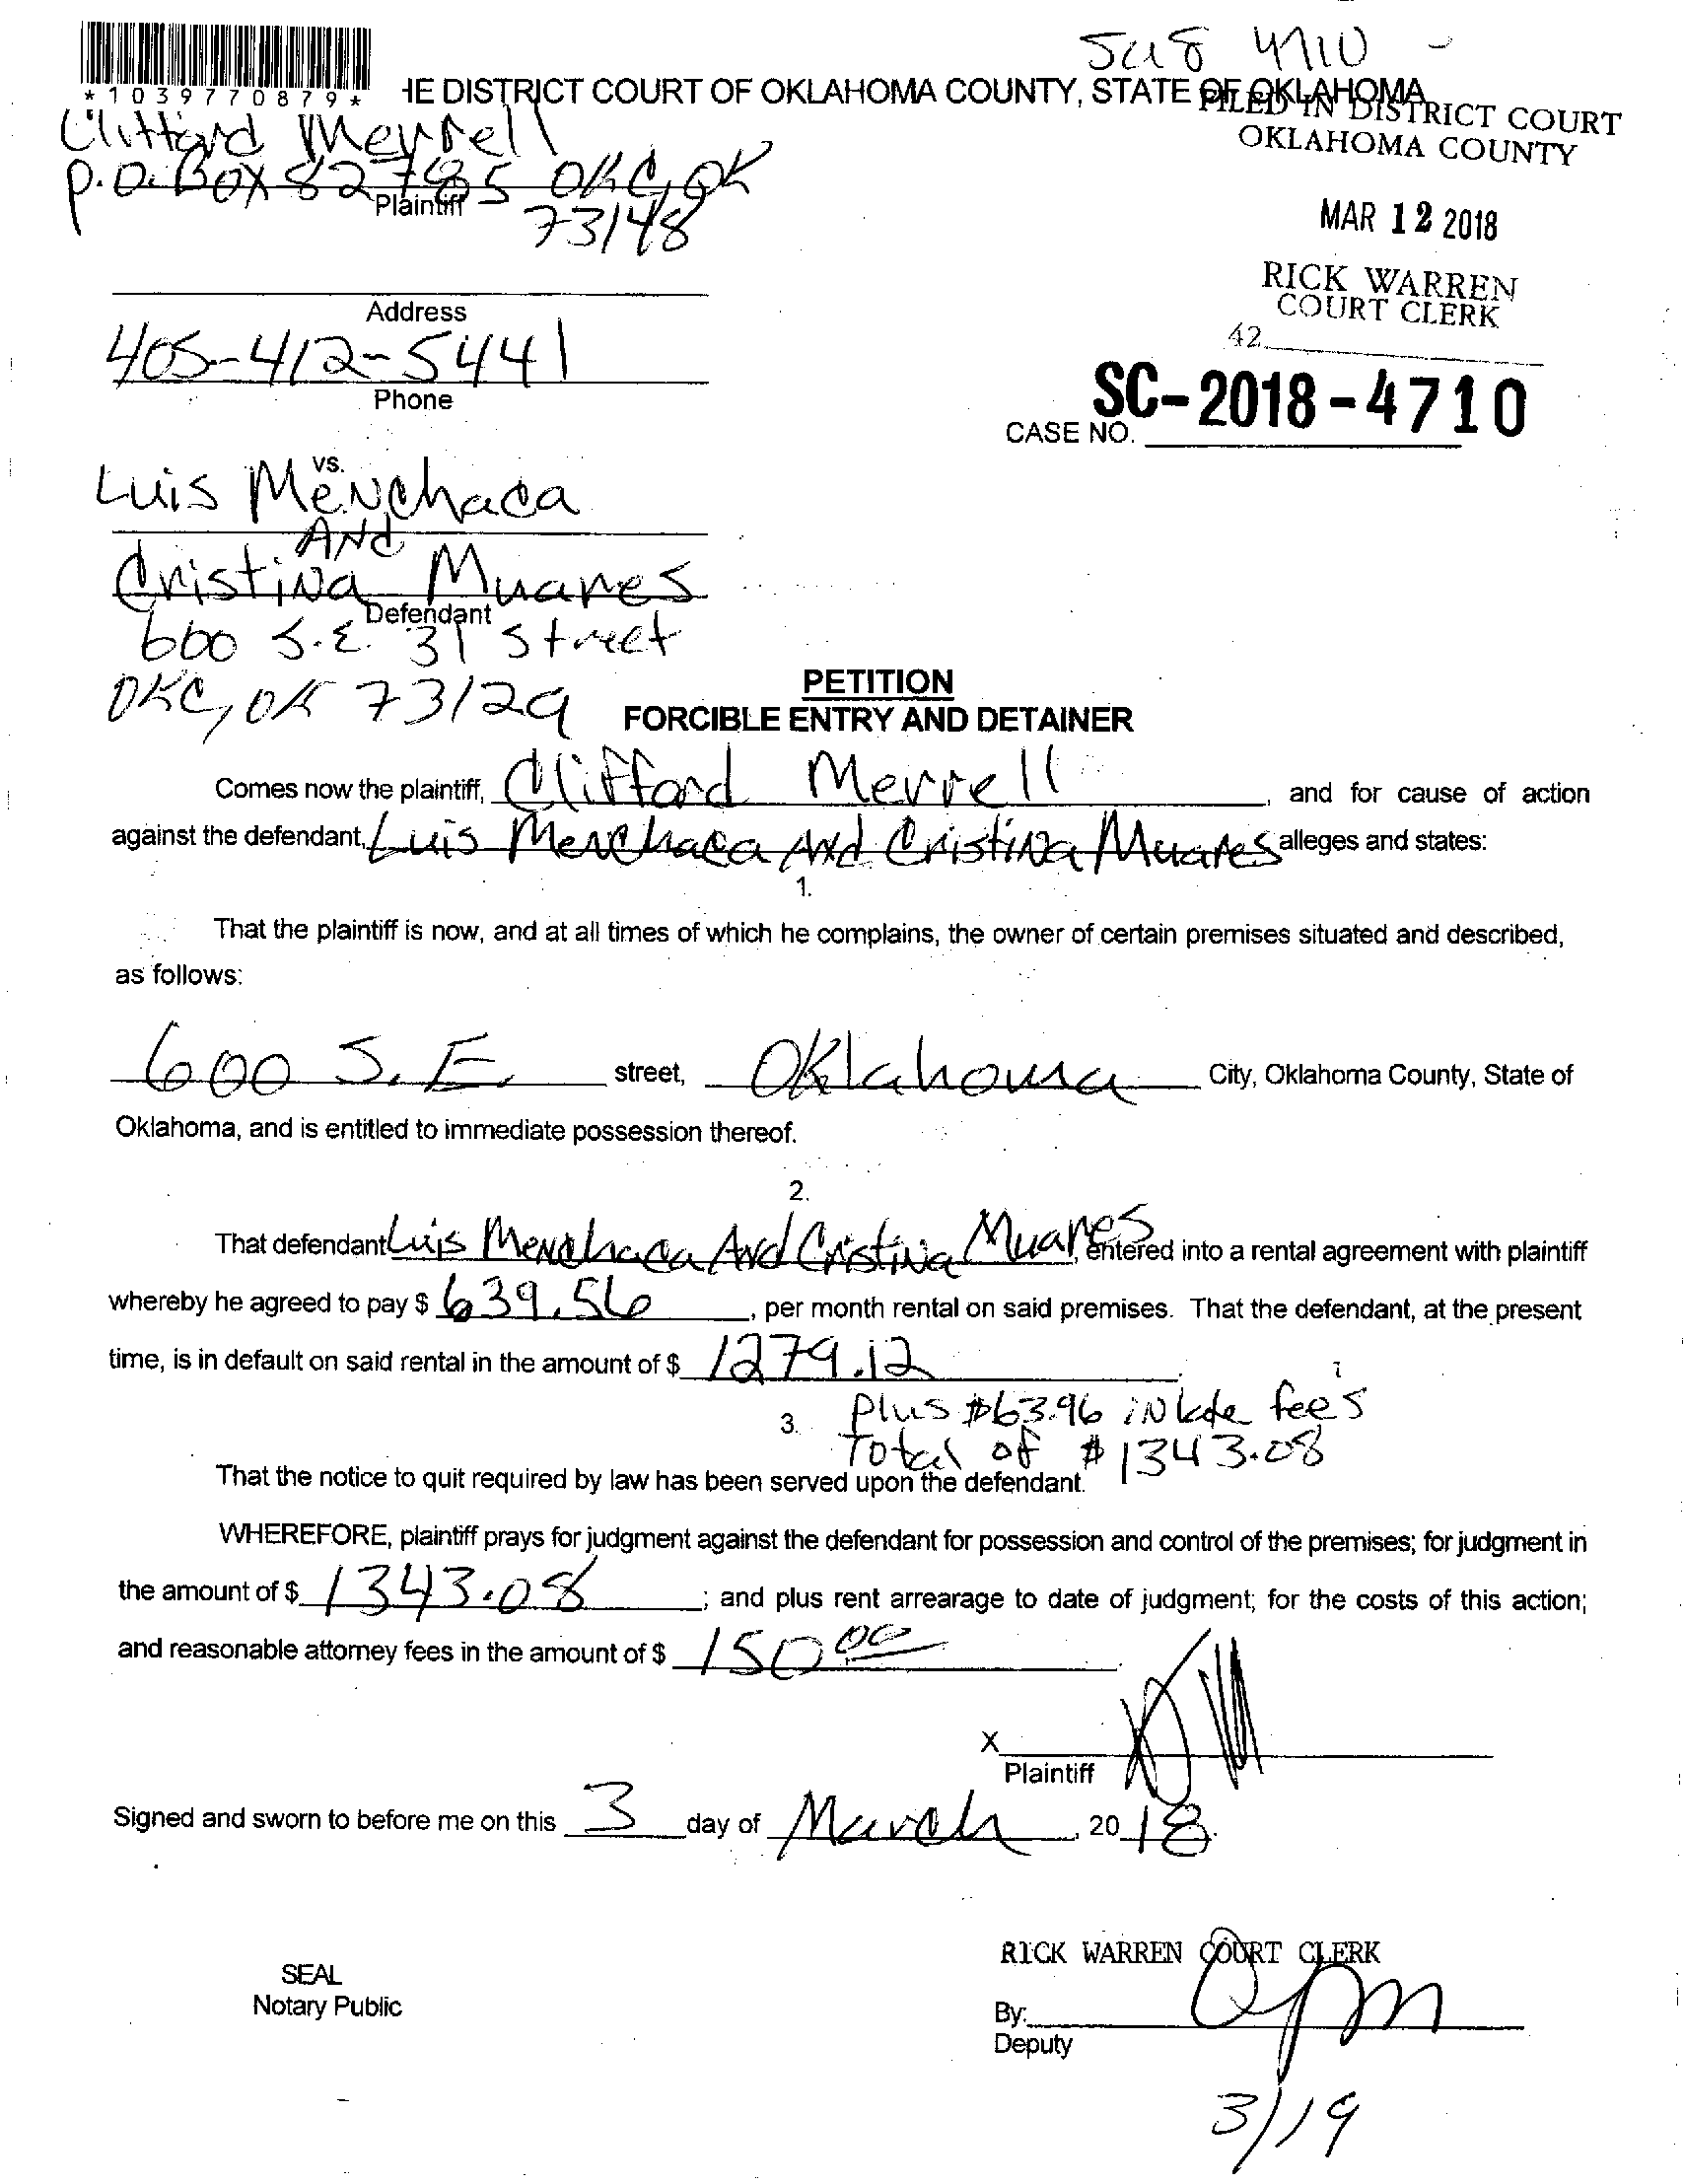 SC18 4710 -
*1039770879*
HE DISTRICT COURT OF OKLAHOMA COUNTY, STATE OF OKLAHOMA
FILED IN DISTRICT COURT
OKLAHOMA COUNTY
Clifford Merrell
P.O. Box 82785 OKC, OK
Plaintiff
73148
MAR 12 2018
RICK WARREN
COURT CLERK
42
Address
405-412-5441
Phone
SC-2018-4710
CASE NO.
vs.
Luis Menchaca
And
Cristina Muares
Defendant
600 S.E. 31 Street
OKC, OK 73129
PETITION
FORCIBLE ENTRY AND DETAINER
Comes now the plaintiff, Clifford Merrell, and for cause of action
against the defendant, Luis Menchaca And Cristina Muares alleges and states:
1.
That the plaintiff is now, and at all times of which he complains, the owner of certain premises situated and described,
as follows:
600 S. E. street, Oklahoma City, Oklahoma County, State of
Oklahoma, and is entitled to immediate possession thereof.
2.
That defendant Luis Menchaca And Cristina Muares, entered into a rental agreement with plaintiff
whereby he agreed to pay $ 639.56, per month rental on said premises. That the defendant, at the present
time, is in default on said rental in the amount of $ 1279.12.
plus $63.96 in late fee's
3.
Total of $1343.08
That the notice to quit required by law has been served upon the defendant.
WHEREFORE, plaintiff prays for judgment against the defendant for possession and control of the premises; for judgment in
the amount of $ 1343.08; and plus rent arrearage to date of judgment; for the costs of this action;
and reasonable attorney fees in the amount of $ 150.00.
X
Plaintiff
Signed and sworn to before me on this 3 day of March, 2018.
RICK WARREN COURT CLERK
SEAL
Notary Public
By:
Deputy
3/19